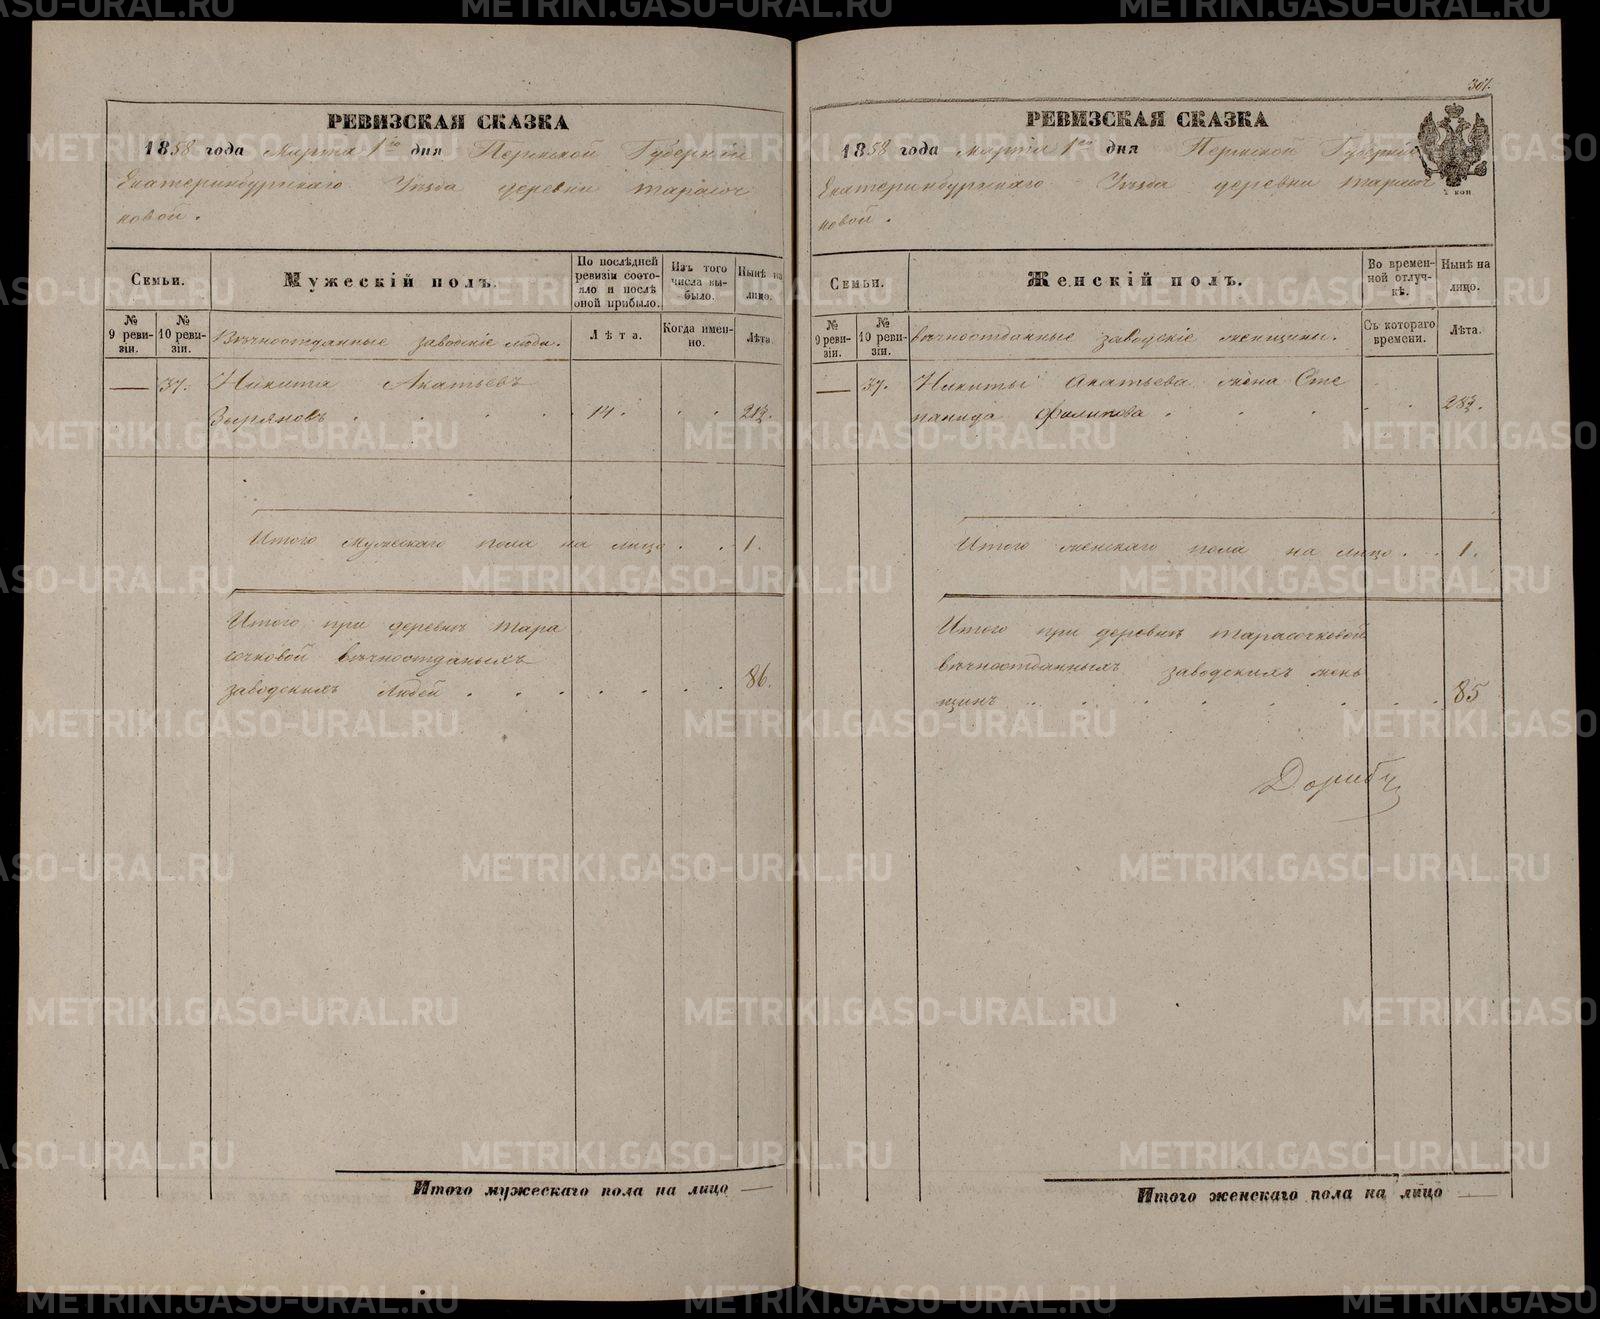 РЕВИЗСКАЯ СКАЗКА
1858 года Марта 1го дня Пермской Губернии
Екатеринбургскаго Уѣзда деревни Тарасоч
ковой.
Семьи.
Мужескій полъ.
По послѣдней ревизіи состояло и послѣ оной прибыло.
Изъ того числа выбыло.
Нынѣ на лицо.
№ 9 ревизіи.
№ 10 ревизіи.
Вѣчноотданные заводскіе люди.
Лѣта.
Когда именно.
Лѣта
— 37. Никита Акатьевъ
Зыряновъ . . . . . 14. . . 21½.
Итого мужескаго пола на лицо . . 1.
Итого при деревнѣ Тара
сочковой вѣчноотданыхъ
заводскихъ людей . . . . . . . 86.
Итого мужескаго пола на лицо —
307.
РЕВИЗСКАЯ СКАЗКА
1858 года Марта 1го дня Пермской Губерніи
Екатеринбургскаго Уѣзда деревни Тарасоч
ковой.
2 коп
Семьи.
Женскій полъ.
Во временной отлучкѣ.
Нынѣ на лицо.
№ 9 ревизіи.
№ 10 ревизіи.
вѣчноотданные заводскіе женщины.
Съ котораго времени.
Лѣта.
— 37. Никиты Акатьева жена Сте
панида Филипова . . . . . . 28½.
Итого женскаго пола на лицо . . 1.
Итого при деревнѣ Тарасочковой
вѣчноотданныхъ заводскихъ жен
щинъ . . . . . . . . 85
Итого женскаго пола на лицо —
METRIKI.GASO-URAL.RU